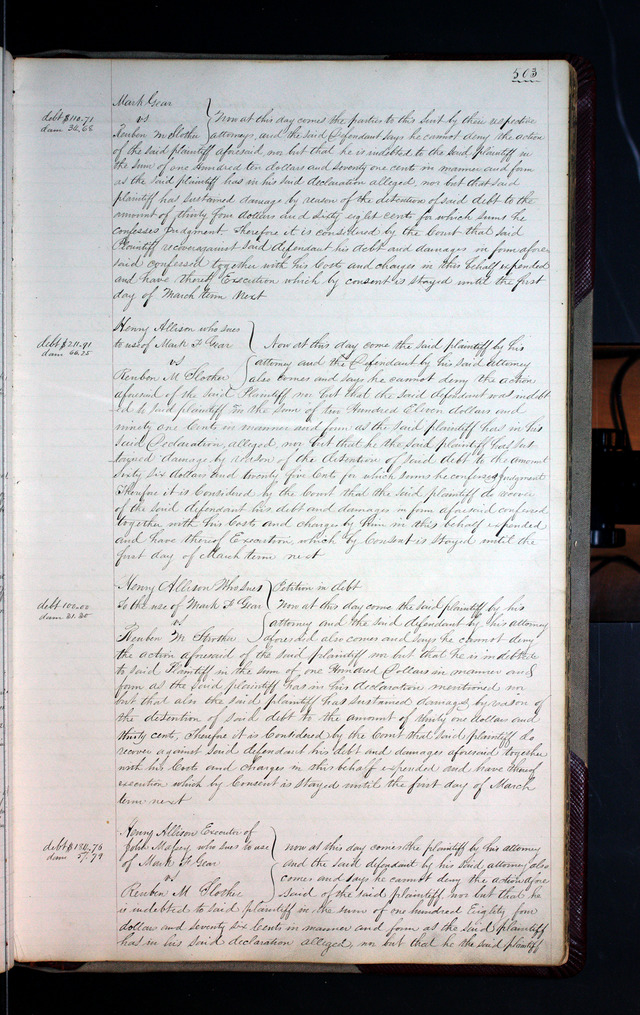 503
Mark Gear
debt $110.71
vs
Now at this day comes the parties to this Suit by their respective
dam 34.68
Reuben M Slother
attorneys, and the said Defendant says he cannot deny the action
of the said plaintiff aforesaid nor but that he is indebted to the said plaintiff in
the sum of one hundred ten dollars and seventy one cents in manner and form
as the said plaintiff has in his said declaration alleged, nor but that said
plaintiff has sustained damage by reason of the detention of said debt to the
amount of thirty four dollars and sixty eight cents for which sums he
confesses Judgment. Therefore it is considered by the Court that said
Plaintiff recover against said defendant his debt and damages in form afore
said confessed together with his Costs and charges in this behalf expended
and have thereof Execution which by consent is stayed until the first
day of March term Next
Henry Allison who sues
debt $211.91
to use of Mark F Gear
Now at this day come the said plaintiff by his
dam 66.25
vs
attorney and the Defendant by his said attorney
Reubon M Slother
also comes and says he cannot deny the action
aforesaid of the said Plaintiff nor but that the said defendant was indebt
ed to said plaintiff in the sum of two Hundred Eleven dollars and
ninety one Cents in manner and form as the said plaintiff has in his
said Declaration alleged, nor but that he the said plaintiff has sus
tained damage by reason of the detention of said debt to the amount
sixty six dollars and twenty five Cents for which sums he confesses Judgment
Therefore it is Considered by the Court that the said plaintiff do recover
of the said defendant his debt and damages in form aforesaid confessed
together with his Costs and charges by him in this behalf expended
and have thereof Execution which by Consent is stayed until the
first day of March term next
Henry Allison Who sues
Petition in debt
debt 100.00
to the use of Mark F Gear
Now at this day come the said plaintiff by his
dam 31.30
vs
attorney and the said defendant by his attorney
Reuben M Strother
aforesaid also comes and says he cannot deny
the action aforesaid of the said plaintiff nor but that he is indebted
to said Plaintiff in the sum of one Hundred Dollars in manner and
form as the said plaintiff has in his declaration mentioned nor
but that also the said plaintiff has sustained damages by reason of
the detention of said debt to the amount of thirty one dollars and
thirty cents, Therefore it is Considered by the Court that said plaintiff do
recover against said defendant his debt and damages aforesaid together
with his Costs and charges in this behalf expended and have thereof
execution which by Consent is stayed until the first day of March
term next
Henry Allison Executor of
debt $184.76
John Massey who sues to use
now at this day comes the plaintiff by his attorney
dam 57.79
of Mark F Gear
and the said defendant by his said attorney also
vs
comes and says he cannot deny the action afore
Reuben M Slother
said of the said plaintiff, nor but that he
is indebted to said plaintiff in the sum of one hundred Eighty four
dollars and seventy six Cents in manner and form as the said plaintiff
has in his said declaration alleged, nor but that he the said plaintiff